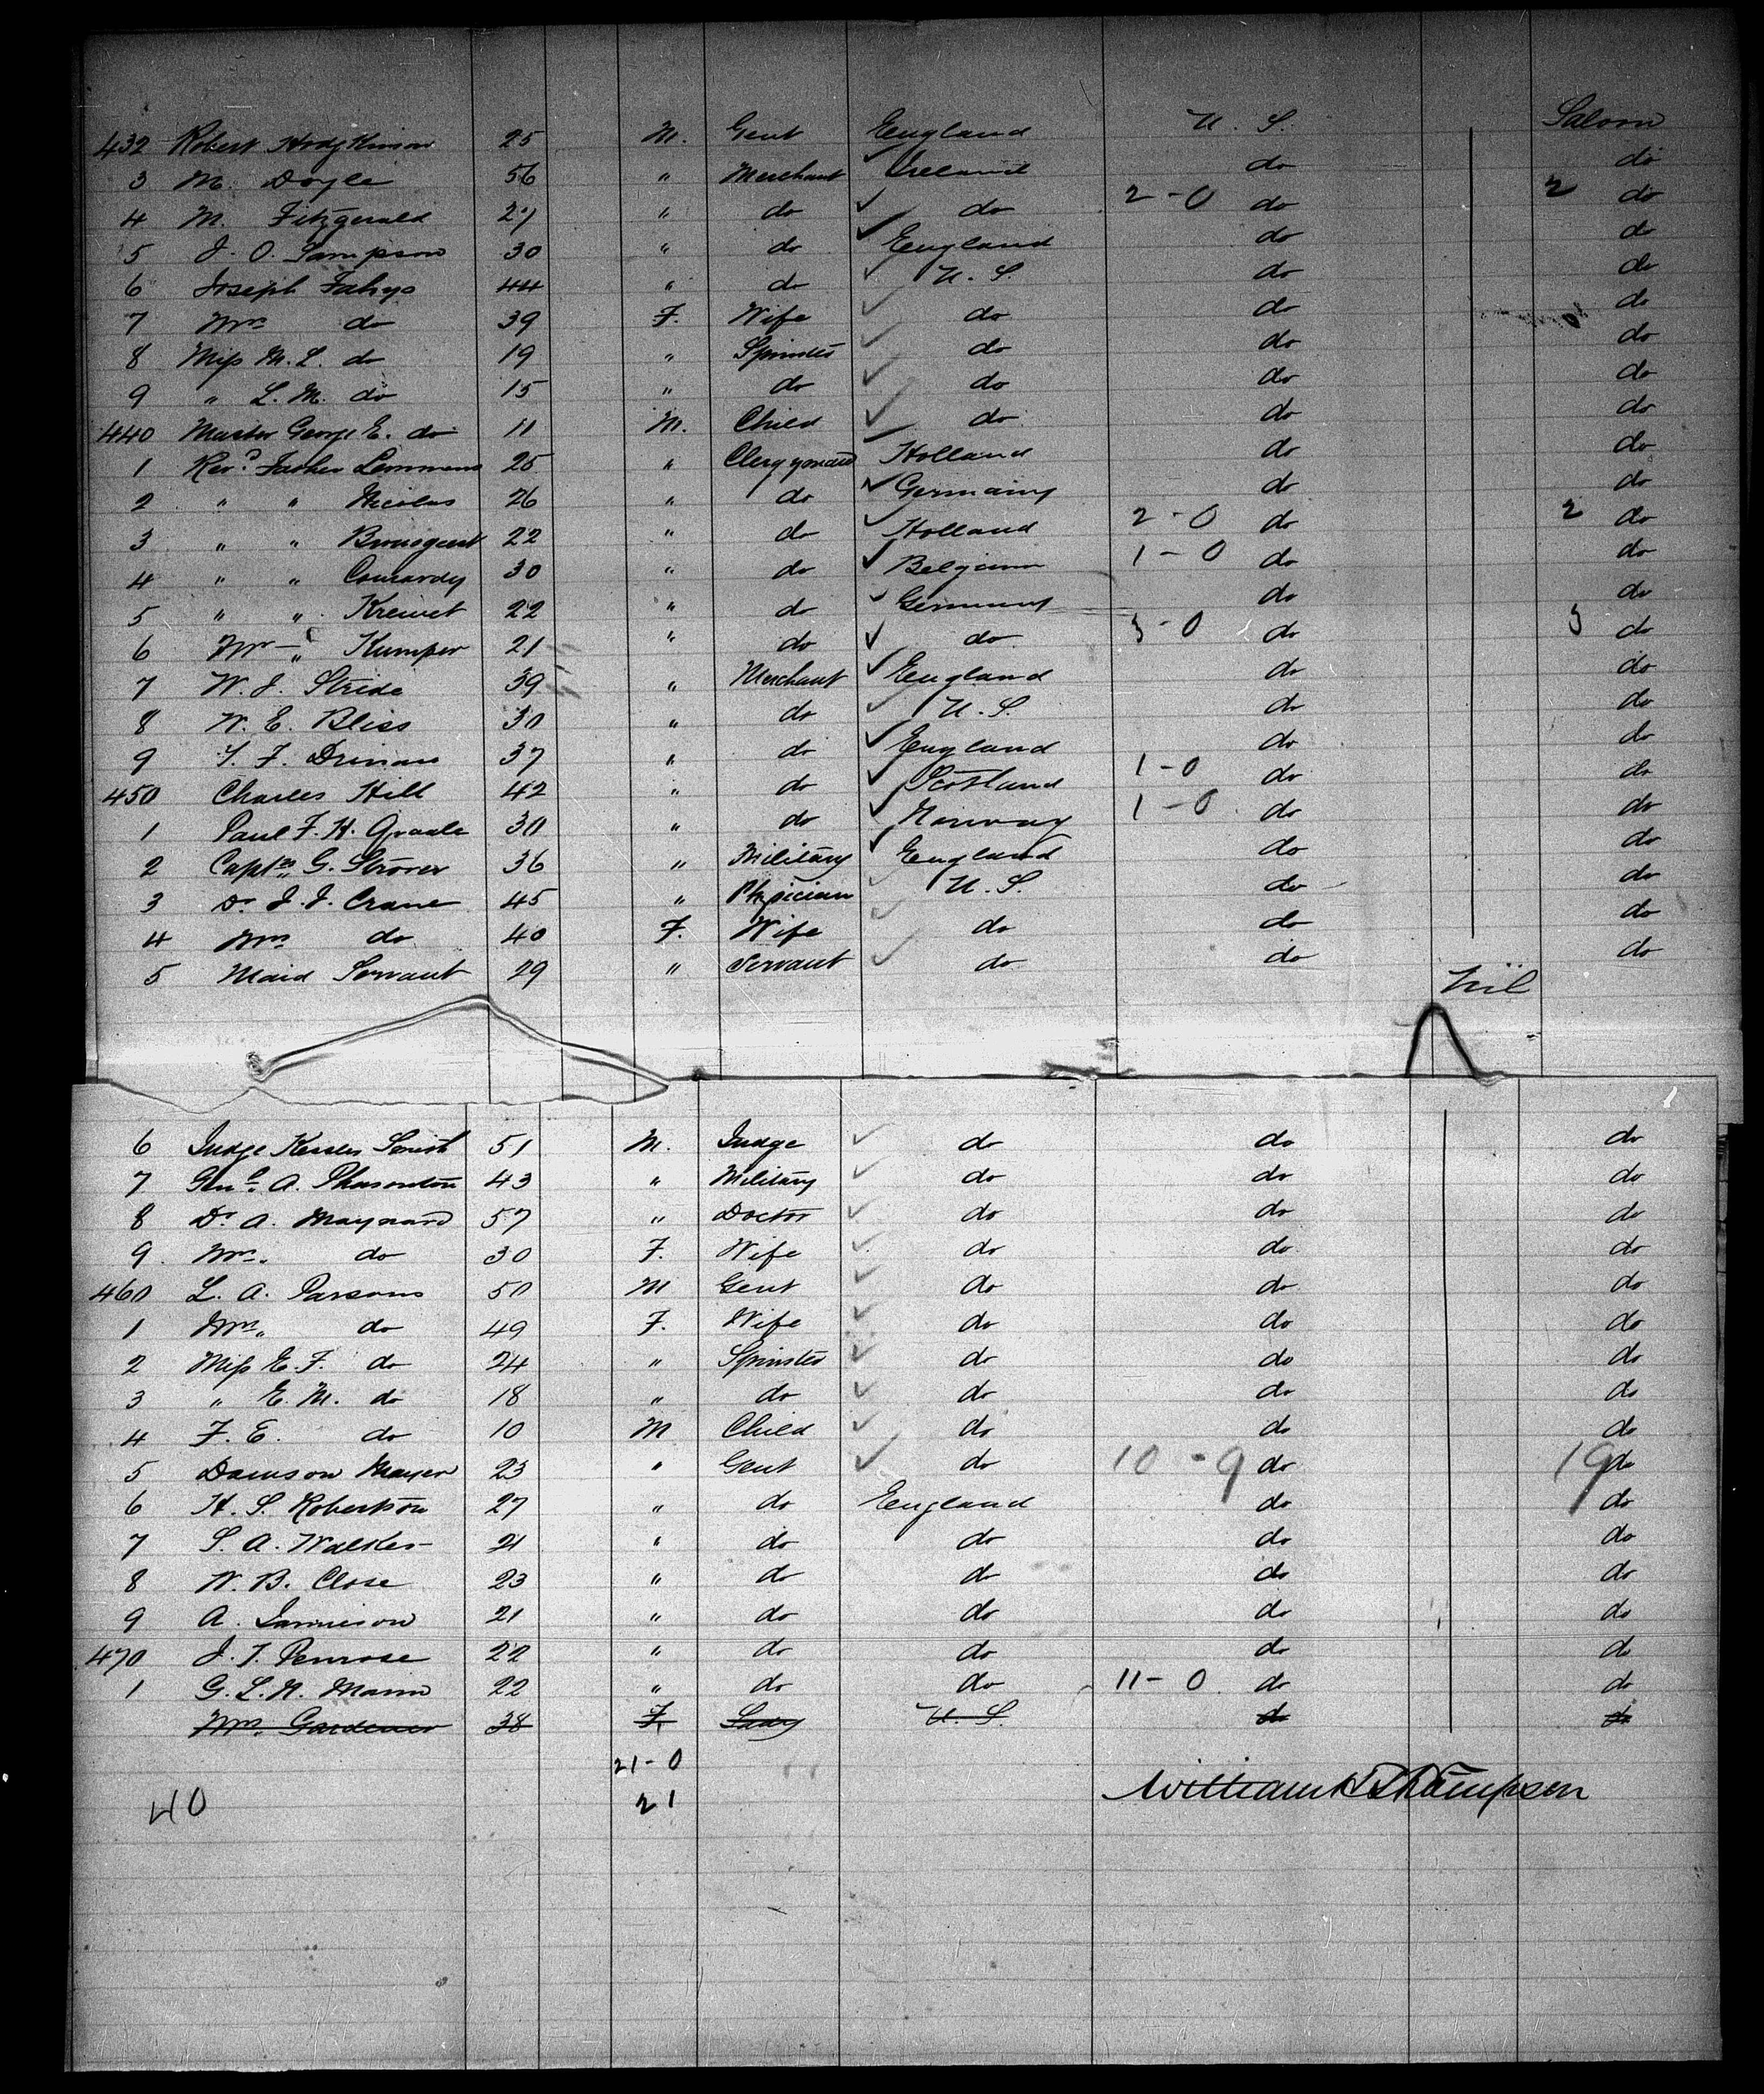 432 Robert Hodgkinson 25 M. Gent England U. S. Saloon
3 M. Doyle 56 " Merchant ✓ Ireland do do
4 M. Fitzgerald 27 " do ✓ do 2-0 do 2 do
5 J. O. Sampson 30 " do ✓ England do do
6 Joseph Fahys 44 " do ✓ U. S. do do
7 Mrs do 39 F. Wife ✓ do do do
8 Miss M. L. do 19 " Spinster ✓ do do do
9 " L. M. do 15 " do ✓ do do do
440 Master George E. do 11 M. Child ✓ do do do
1 Revd Father Lemmens 25 " Clergyman Holland do do
2 " " Nicolas 26 " do ✓ Germany do do
3 " " 22 " do ✓ Holland 2-0 do 2 do
4 " " Conrardy 30 " do ✓ Belgium 1-0 do do
5 " " Kreivet 22 " do ✓ Germany do do
6 Mr " Kumper 21 " do ✓ do 3-0 do 3 do
7 W. J. Stride 39 " Merchant ✓ England do do
8 W. E. Bliss 30 " do ✓ U. S. do do
9 T. F. Drinan 37 " do ✓ England do do
450 Charles Hill 42 " do ✓ Scotland 1-0 do do
1 Paul F. H. 30 " do ✓ Norway 1-0 do do
2 Captn G. Strover 36 " Military ✓ England do do
3 Dr J. J. Crane 45 " Physician ✓ U. S. do do
4 Mrs do 40 F. Wife ✓ do do do
5 Maid Servant 29 " Servant ✓ do do do
Nil
6 Judge Kessler Smith 51 M. Judge ✓ do do do
7 Genl A. Pleasonton 43 " Military ✓ do do do
8 Dr A. Maynard 57 " Doctor ✓ do do do
9 Mrs. do 30 F. Wife ✓ do do do
460 L. A. Parsons 50 M Gent ✓ do do do
1 Mrs. do 49 F. Wife ✓ do do do
2 Miss E. F. do 24 " Spinster ✓ do do do
3 " E. M. do 18 " do ✓ do do do
4 F. E. do 10 M Child ✓ do do do
5 Dawson Mayer 23 " Gent ✓ do 10-9 do 19 do
6 H. S. Robertson 27 " do England do do
7 S. A. Walker 21 " do do do do
8 W. B. Close 23 " do do do do
9 A. Jamieson 21 " do do do do
470 J. T. Penrose 22 " do do do do
1 G. L. N. Mann 22 " do do 11-0 do do
Mrs. Gardener 38 F. Lady U. S. do do
21-0
40 21 William H Thompson